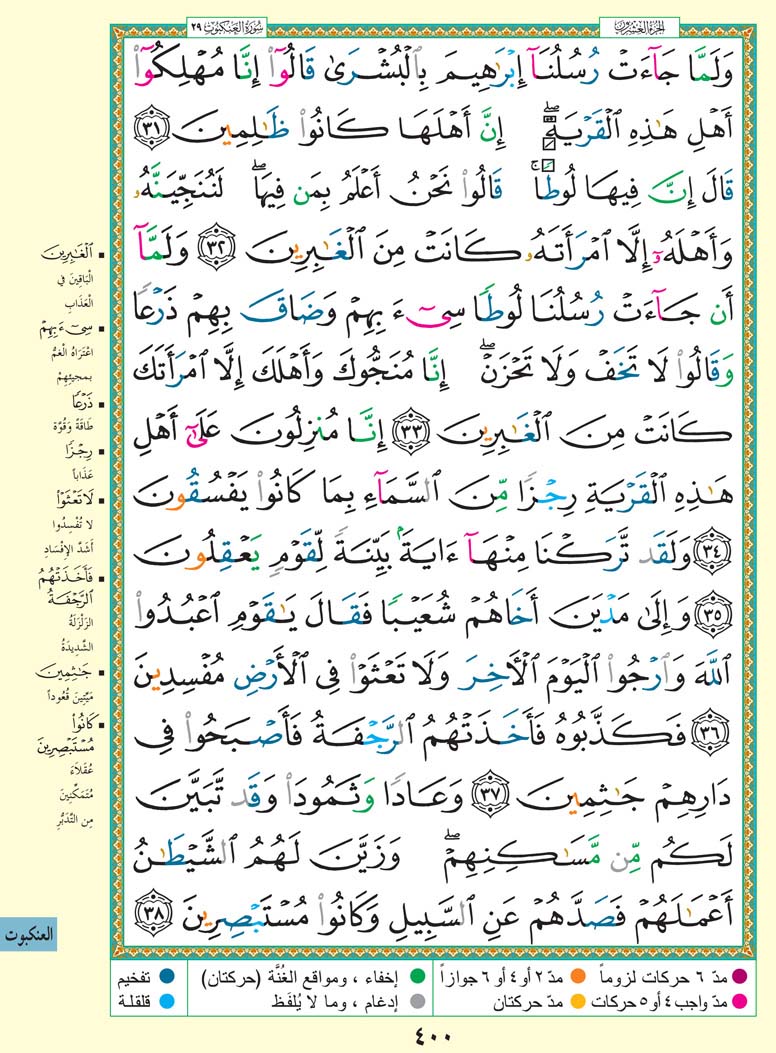 سُورَةُ العَنكَبُوتِ ٢٩
الجُزءُ العِشرُونَ
وَلَمَّا جَآءَتْ رُسُلُنَآ إِبْرَٰهِيمَ بِٱلْبُشْرَىٰ قَالُوٓا۟ إِنَّا مُهْلِكُوٓا۟
أَهْلِ هَٰذِهِ ٱلْقَرْيَةِ ۖ إِنَّ أَهْلَهَا كَانُوا۟ ظَٰلِمِينَ ٣١
قَالَ إِنَّ فِيهَا لُوطًا ۚ قَالُوا۟ نَحْنُ أَعْلَمُ بِمَن فِيهَا ۖ لَنُنَجِّيَنَّهُۥ
وَأَهْلَهُۥٓ إِلَّا ٱمْرَأَتَهُۥ كَانَتْ مِنَ ٱلْغَٰبِرِينَ ٣٢ وَلَمَّآ
أَن جَآءَتْ رُسُلُنَا لُوطًا سِىٓءَ بِهِمْ وَضَاقَ بِهِمْ ذَرْعًا
وَقَالُوا۟ لَا تَخَفْ وَلَا تَحْزَنْ ۖ إِنَّا مُنَجُّوكَ وَأَهْلَكَ إِلَّا ٱمْرَأَتَكَ
كَانَتْ مِنَ ٱلْغَٰبِرِينَ ٣٣ إِنَّا مُنزِلُونَ عَلَىٰٓ أَهْلِ
هَٰذِهِ ٱلْقَرْيَةِ رِجْزًا مِّنَ ٱلسَّمَآءِ بِمَا كَانُوا۟ يَفْسُقُونَ
٣٤ وَلَقَد تَّرَكْنَا مِنْهَآ ءَايَةًۢ بَيِّنَةً لِّقَوْمٍ يَعْقِلُونَ
٣٥ وَإِلَىٰ مَدْيَنَ أَخَاهُمْ شُعَيْبًا فَقَالَ يَٰقَوْمِ ٱعْبُدُوا۟
ٱللَّهَ وَٱرْجُوا۟ ٱلْيَوْمَ ٱلْأَخِرَ وَلَا تَعْثَوْا۟ فِى ٱلْأَرْضِ مُفْسِدِينَ
٣٦ فَكَذَّبُوهُ فَأَخَذَتْهُمُ ٱلرَّجْفَةُ فَأَصْبَحُوا۟ فِى
دَارِهِمْ جَٰثِمِينَ ٣٧ وَعَادًا وَثَمُودَا۟ وَقَد تَّبَيَّنَ
لَكُم مِّن مَّسَٰكِنِهِمْ ۖ وَزَيَّنَ لَهُمُ ٱلشَّيْطَٰنُ
أَعْمَٰلَهُمْ فَصَدَّهُمْ عَنِ ٱلسَّبِيلِ وَكَانُوا۟ مُسْتَبْصِرِينَ ٣٨
ٱلْغَٰبِرِينَ
الْبَاقِينَ فِي
الْعَذَابِ
سِىٓءَ بِهِمْ
اعْتَرَاهُ الْغَمُّ
بمجيئِهِمْ
ذَرْعًا
طَاقَةً وَقُوَّةً
رِجْزًا
عَذَاباً
لَا تَعْثَوْا۟
لا تُفْسِدُوا
أَشَدَّ الإِفْسَادِ
فَأَخَذَتْهُمُ
ٱلرَّجْفَةُ
الزَّلْزَلَةُ
الشَّدِيدَةُ
جَٰثِمِينَ
مَيِّتِينَ قُعُوداً
كَانُوا۟
مُسْتَبْصِرِينَ
عُقَلاءَ
مُتَمَكِّنِينَ
مِن التَّدَبُّرِ
العنكبوت
مدّ ٦ حركات لزوماً مدّ ٢ أو ٤ أو ٦ جوازاً إخفاء ، ومواقع الغُنَّة (حركتان) تفخيم
مدّ واجب ٤ أو ٥ حركات مدّ حركتان إدغام ، وما لا يُلفَظ قلقلة
٤٠٠